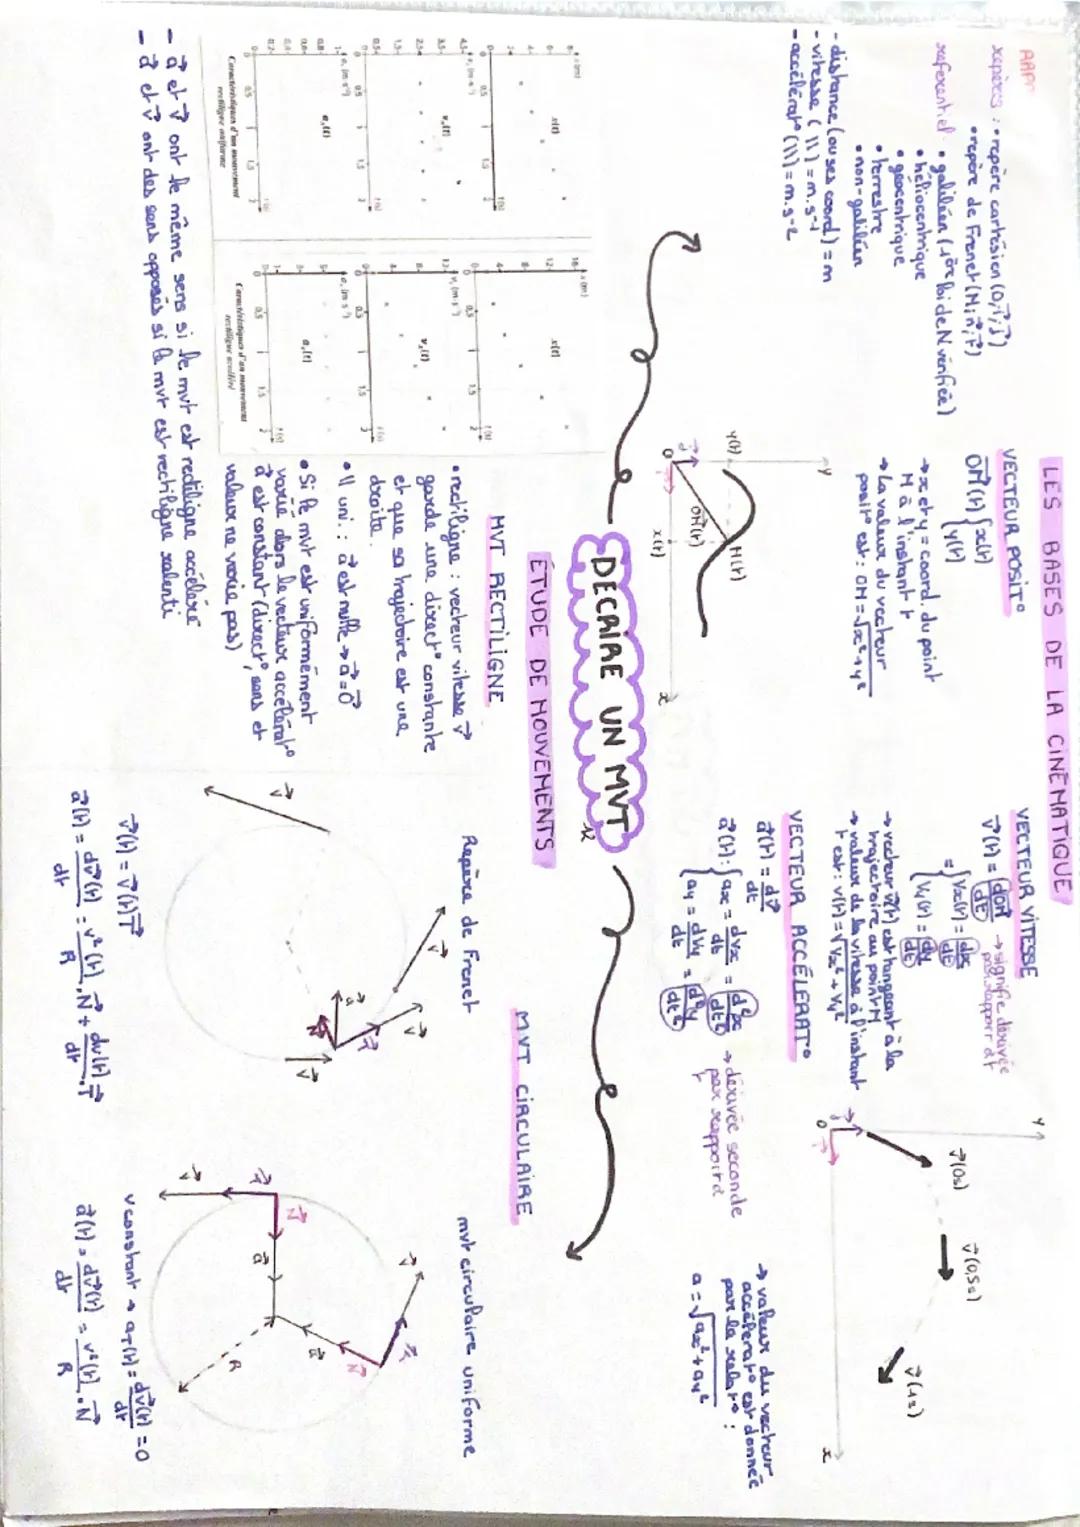 LES BASES DE LA CINÉMATIQUE
RAPP
repères : • repère cartésien (O,i⃗,j⃗)
• repère de Frenet (M; n⃗, t⃗)
referentiel • galiléen (1ère loi de N vérifiée)
• héliocentrique
• géocentrique
• terrestre
• non-galiléen
- distance (ou ses coord) = m
- vitesse ( \\ ) = m.s-1
- accélérat° ( \\ ) = m.s-2
VECTEUR POSIT°
OM⃗(t) { x(t)
y(t)
→ x et y = coord. du point
M à l'instant t
→ la valeur du vecteur
posit° est : OM = √x²+y²
y
y(t)
M(t)
OM⃗(t)
j⃗
O
i⃗
x(t)
x
VECTEUR VITESSE
v⃗(t) = dOM⃗/dt → signifie dérivée
par rapport à t
= { Vx(t) = dx/dt
Vy(t) = dy/dt
→ vecteur v⃗(t) est tangeant à la
trajectoire au point M
→ valeur de la vitesse à l'instant
t est : v(t) = √Vx² + Vy²
y
v⃗(0s)
v⃗(0,5s)
v⃗(1s)
j⃗
O
i⃗
x
VECTEUR ACCÉLERAT°
a⃗(t) = dv⃗/dt
a⃗(t) : { ax = dvx/dt = d²x/dt²
ay = dvy/dt = d²y/dt²
→ dérivée seconde
par rapport à
t
→ valeur du vecteur
accélerat° est donnée
par la relat° :
a = √ax² + ay²
DECRIRE UN MVT
ÉTUDE DE MOUVEMENTS
MVT RECTILIGNE
• rectiligne : vecteur vitesse v⃗
garde une direct° constante
et que sa trajectoire est une
droite.
• \\ uni : a⃗ est nulle → a⃗ = 0⃗
• Si le mvt est uniformément
varié alors le vecteur accélérat°
a⃗ est constant (direct°, sens et
valeur ne varie pas)
x (m)
x(t)
t (s)
vx (m·s⁻¹)
vx(t)
t (s)
ax (m·s⁻²)
ax(t)
t (s)
Caractéristiques d'un mouvement
rectiligne uniforme
x (m)
x(t)
t (s)
vx (m·s⁻¹)
vx(t)
t (s)
ax (m·s⁻²)
ax(t)
t (s)
Caractéristiques d'un mouvement
rectiligne accéléré
- a⃗ et v⃗ ont le même sens si le mvt est rectiligne accéléré
- a⃗ et v⃗ ont des sens opposés si le mvt est rectiligne ralenti
MVT CIRCULAIRE
Repère de Frenet
v⃗
v⃗
v⃗
v⃗
a⃗
T⃗
N⃗
v⃗(t) = v⃗(t)T⃗
a⃗(t) = dv⃗(t)/dt = v²(t)/R . N⃗ + dv(t)/dt . T⃗
mvt circulaire uniforme
v⃗
T⃗
N⃗
a⃗
v⃗
T⃗
N⃗
a⃗
R
v constant → aT(t) = dv⃗(t)/dt = 0
a⃗(t) = dv⃗(t)/dt = v²(t)/R . N⃗